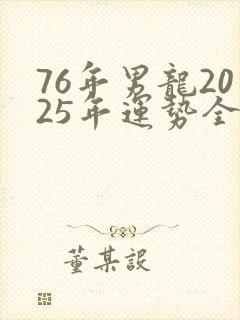 76年男龍20
25年運勢全
董某說